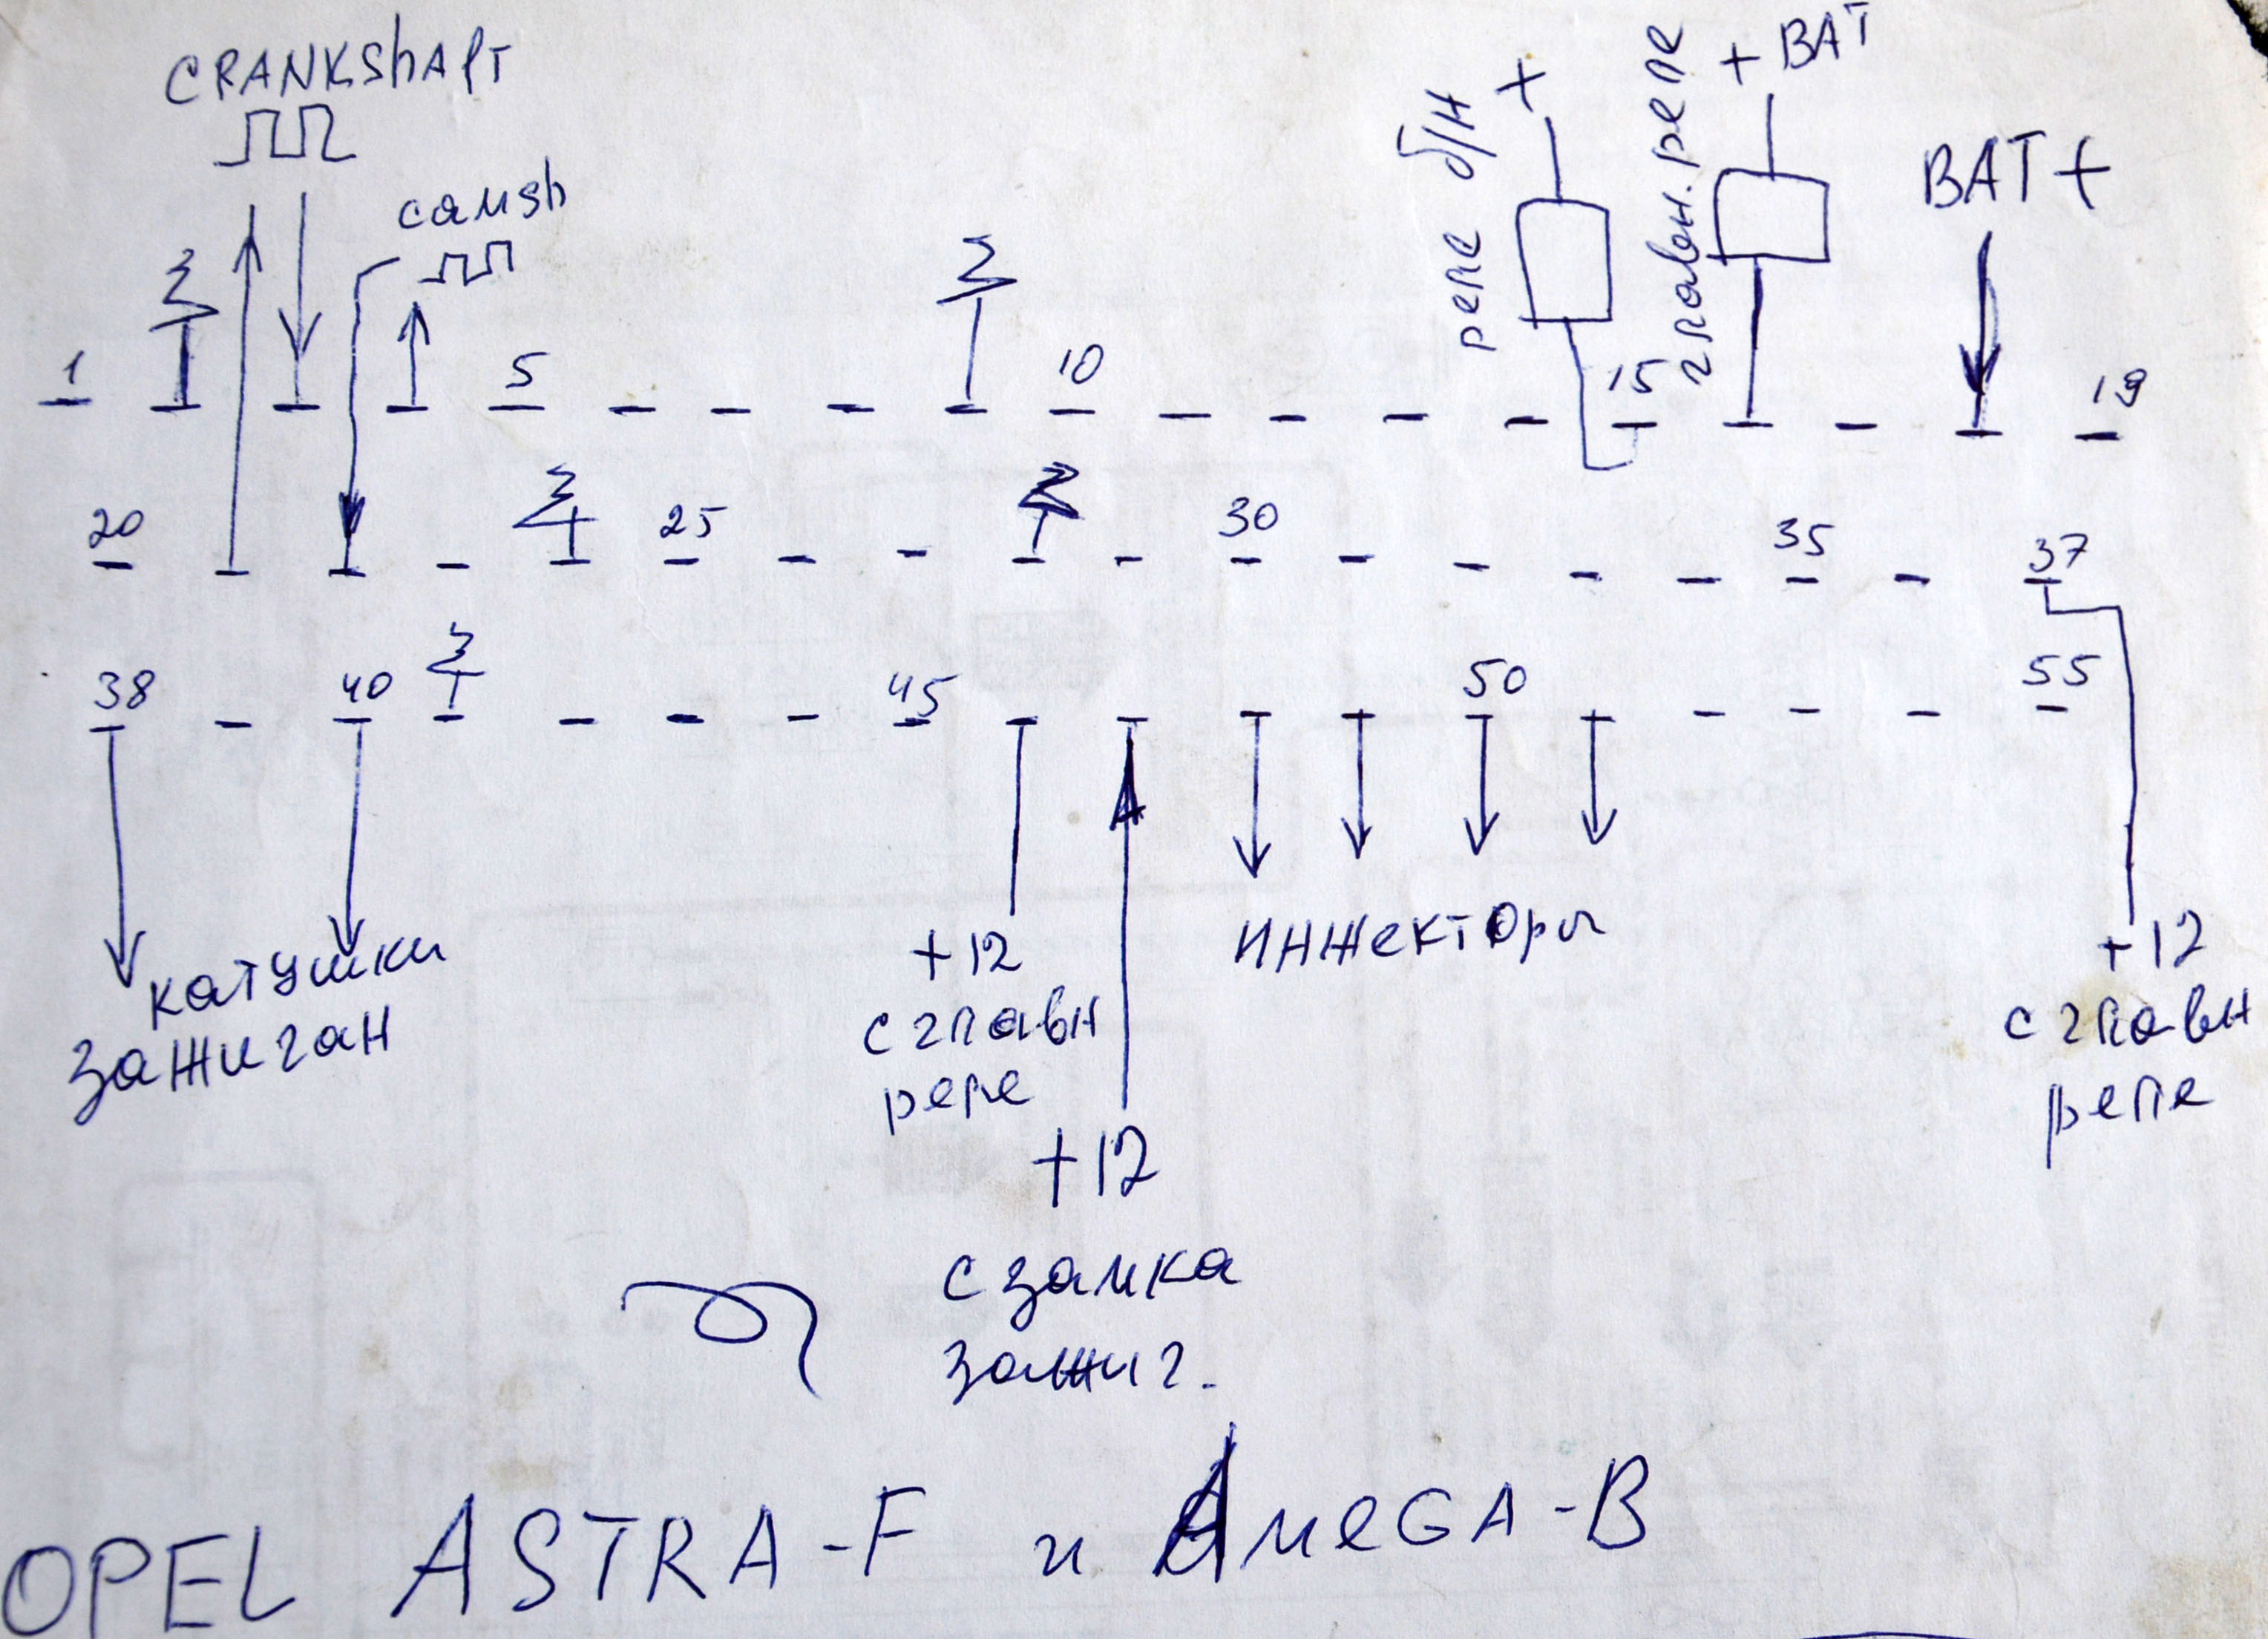 CRANKShAfT
camsh
реле б/н +
главн. реле
+ BAT
BAT +
1 5 10 15 19
20 25 30 35 37
38 40 45 50 55
катушки
зажиган
+12
с главн
реле
+12
с замка
зажиг.
инжекторы
+12
с главн
реле
OPEL ASTRA-F и OMeGA-B